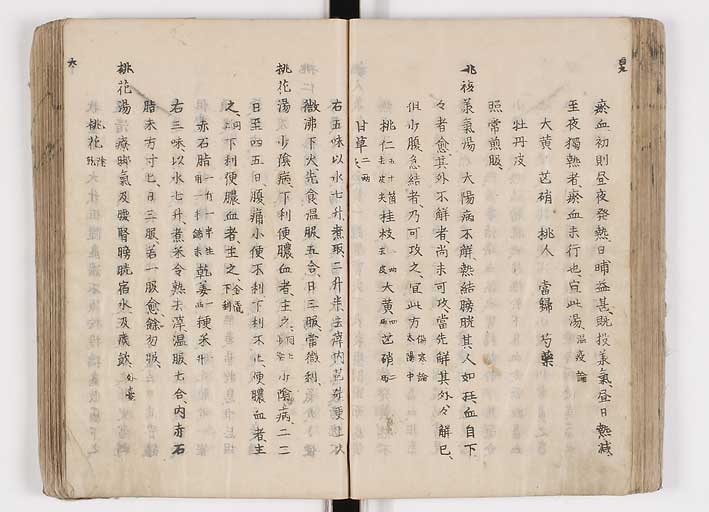 瘀血初則晝夜發熱日晡益甚既投承氣晝日熱減
至夜獨熱者瘀血未行也宜此湯 温疫論
大黄 芒硝 桃人 當歸 芍藥
牡丹皮
照常煎服
桃核承氣湯 太陽病不解熱結膀胱其人如狂血自下下
者愈其外不解者尚未可攻當先解其外外解已
但少腹急結者乃可攻之宜此方 傷寒論 太陽中
桃仁 五十箇去皮尖 桂枝 二两去皮 大黄 四两 芒硝 二两
甘草 二两
右五味以水七升煮取二升半去滓内芒硝更上火
微沸下火先食温服五合日三服當微利
桃花湯 少陰病下利便膿血者主之 少陰病二三
日至四五日腹痛小便不利下利不止便膿血者主
之 同 下利便膿血者主之 金匱 下利
赤石脂 一斤一半全用一半篩末 乾姜 一两 粳米 一升
右三味以水七升煮米令熟去滓温服七合内赤石
脂末方寸匕日三服若一服愈餘勿服
桃花湯 療脚氣及腰腎膀胱宿水及痰飲 外臺
桃花